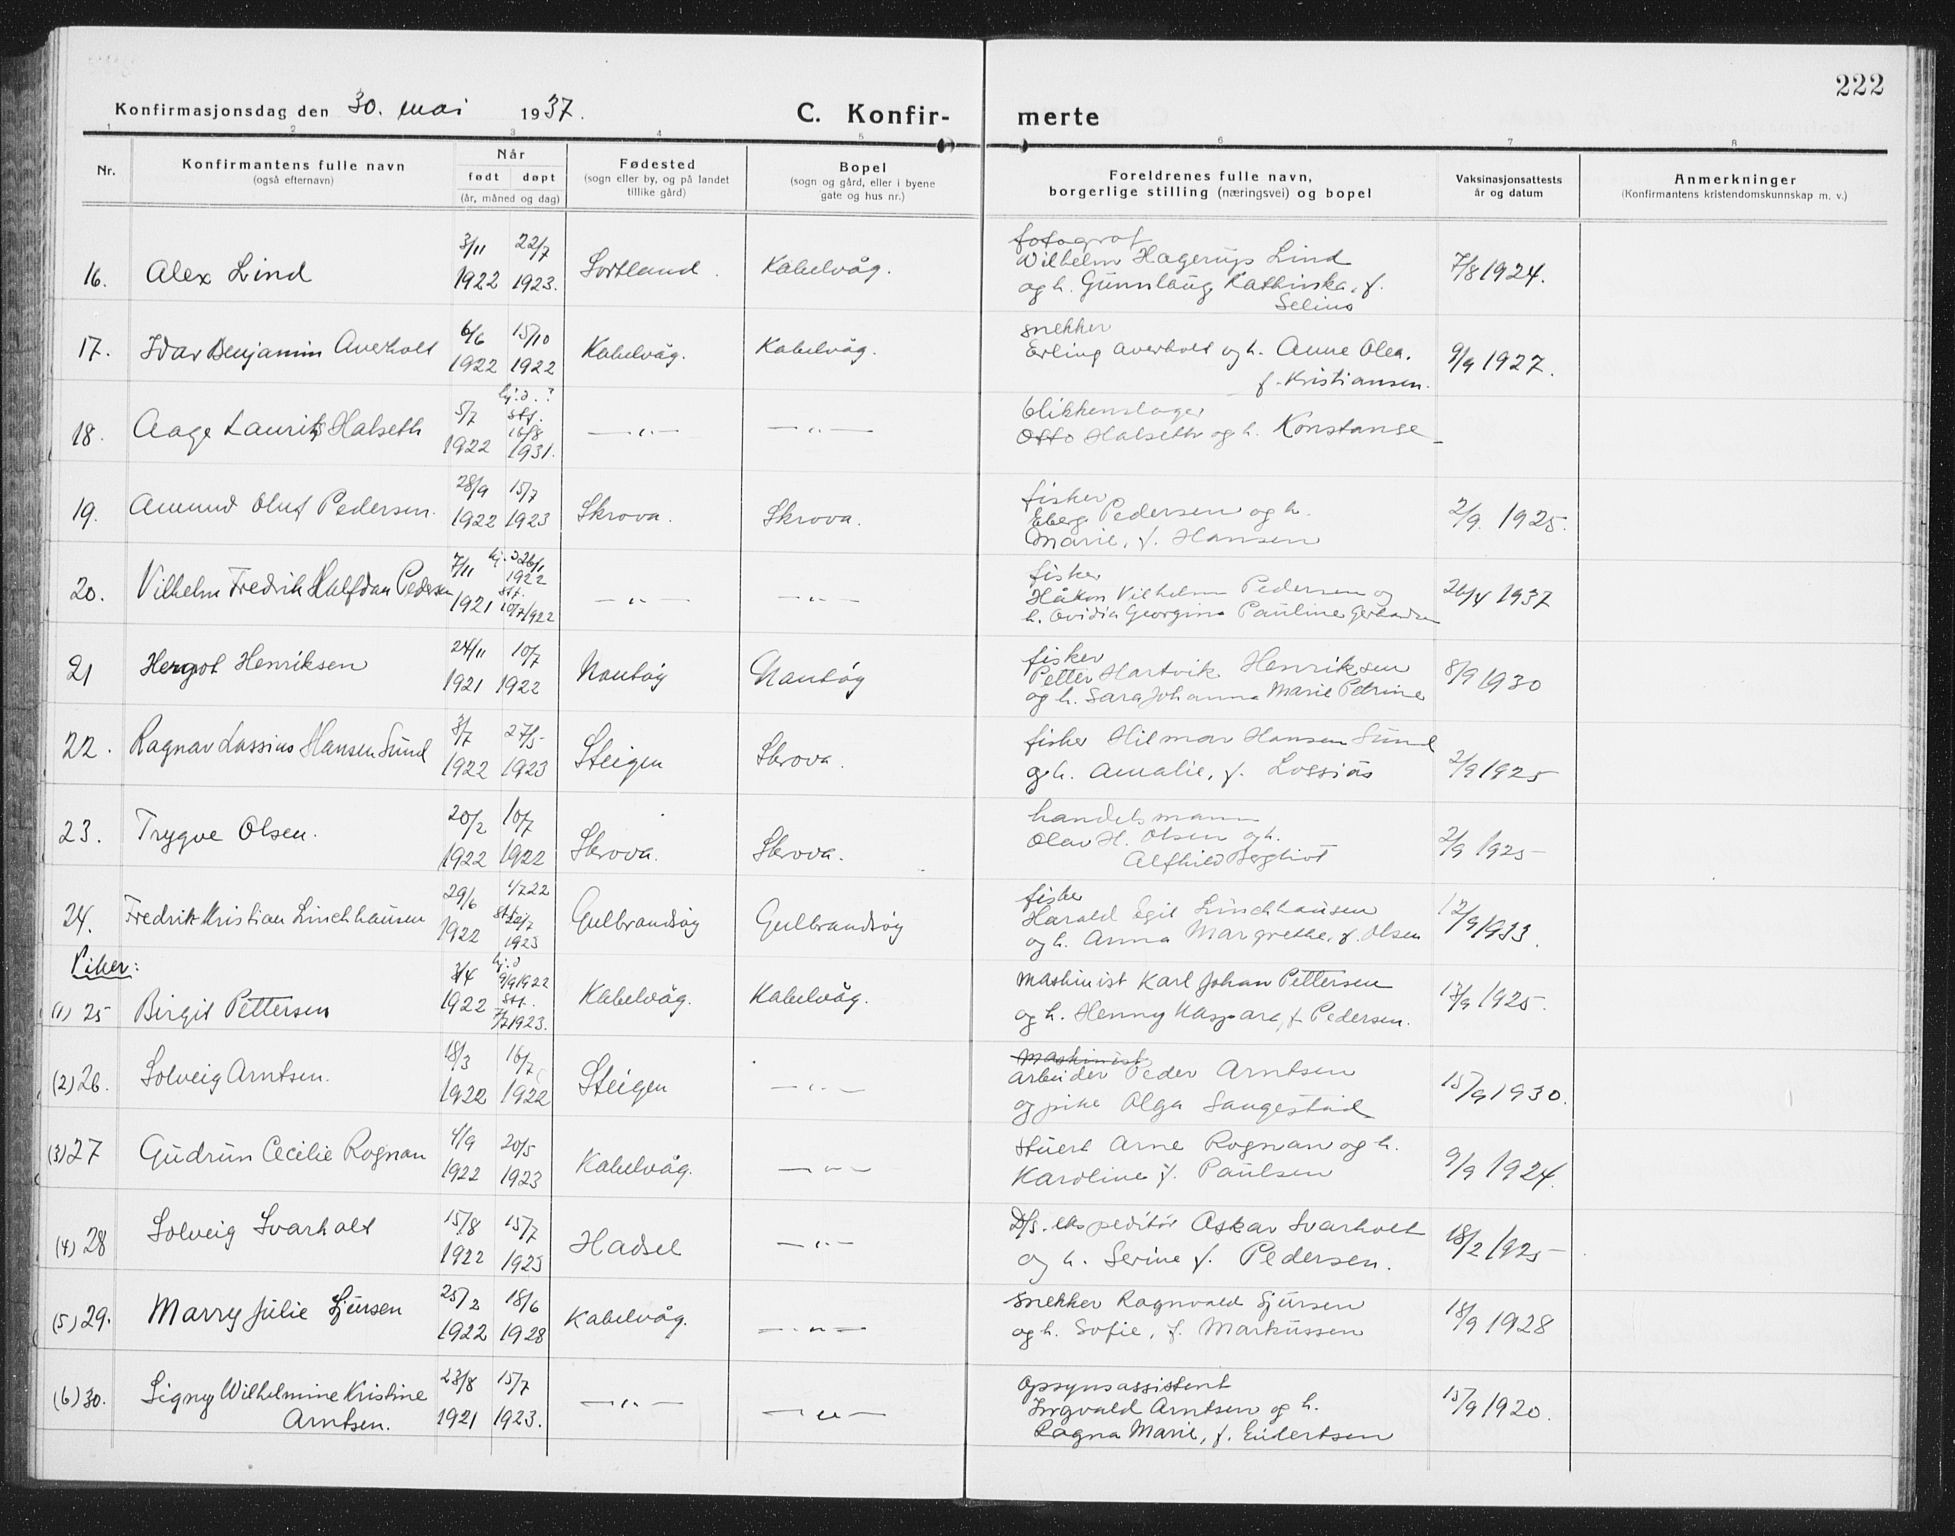 222
Konfirmasjonsdag den 30. mai 1937.
C. Konfirmerte
1 2 3 4 5 6 7 8
Nr.
Konfirmantens fulle navn
(også efternavn)
Når
født døpt
(år, måned og dag)
Fødested
(sogn eller by, og på landet
tillike gård)
Bopel
(sogn og gård, eller i byene
gate og hus nr.)
Foreldrenes fulle navn,
borgerlige stilling (næringsvei) og bopel
Vaksinasjonsattests
år og datum
Anmerkninger
(Konfirmantens kristendomskunnskap m. v.)
16. Alex Lind 3/11 1922 22/7 1923. Sortland. Kabelvåg. fotograf
Wilhelm Hagerup Lind
og h. Gunnlaug Kathinka, f. 7/8 1924.
17. Idar Benjamin Averholt 6/6 1922 15/10 1922 Kabelvåg. Kabelvåg. snekker
Erling Averholt og h. Anne Olea, 9/9 1927.
f. Kristiansen.
18. Aage Laurits Halseth 5/7 1922 hj.d.? stf. 16/8 1931. —„— —„— blikkenslager
Otto Halseth og h. Konstanse —
19. Amund Oluf Pedersen. 28/9 1922 15/7 1923 Skrova. Skrova. fisker
Pedersen og h.
Marie, f. Hansen 2/9. 1925.
20. Vilhelm Fredrik Halfdan Pedersen 7/11 1921 hj.d 26/1 1922 stf. 10/7 1922 —„— —„— fisker
Håkon Vilhelm Pedersen og
h. Ovidia Georgine Pauline 26/4 1937
21 Henriksen 24/11 1921 10/7 1922 fisker
Petter Hartvik Henriksen
og h. Sara Johanna Marie Petrine 8/9 1930
22. Ragnar Lassius Hansen Sund 3/7 1922 27/5 1923 Steigen Skrova. fisker Hilmar Hansen Sund
og h. Amalie, f. 2/9 1925
23. Trygve Olsen. 20/2 1922 10/7 1922 Skrova. Skrova. handelsmann
Olav H. Olsen og h.
Alfhild Bergliot 2/9 1925
24. Fredrik Kristian Linchhausen 29/6 1922 4/7 22 stf. 22/7 1923 Gulbrandsøy Gulbrandsøy fisker
Harald Egil Linchhausen
og h. Anna Margrethe, f. Olsen 12/9 1933.
Piker:
(1) 25 Birgit Pettersen 3/4 1922 hj.d 9/9 1922 stf. 7/7 1923. Kabelvåg. Kabelvåg. maskinist Karl Johan Pettersen
og h. Henny Kaspara, f. Pedersen. 17/9 1925.
(2) 26. Solveig Arntsen. 18/3 1922 16/7 1922 Steigen —„— maskinist
arbeider Peder Arntsen
og pike Olga Saugestad 15/9 1930.
(3) 27 Gudrun Cecilie Rognan 4/9 1922 20/5 1923 Kabelvåg. —„— stuert Arne Rognan og h.
Karoline f. Paulsen 9/9 1924.
(4) 28 Solveig Svarholt 15/8 1922 15/7 1923 Hadsel —„— D/s. ekspeditør Oskar Svarholt
og h. Serine f. Pedersen. 18/2 1925
(5) 29. Marry Julie Sjursen 25/2 1922 18/6 1928 Kabelvåg. —„— snekker Ragnvald Sjursen
og h. Sofie, f. Markussen 18/9 1928
(6) 30. Signy Wilhelmine Kristine
Arntsen. 23/8 1921 15/7 1923. —„— —„— opsynsassistent
Ingvald Arntsen og h.
Ragna Marie, f. Eilertsen 15/9 1920.